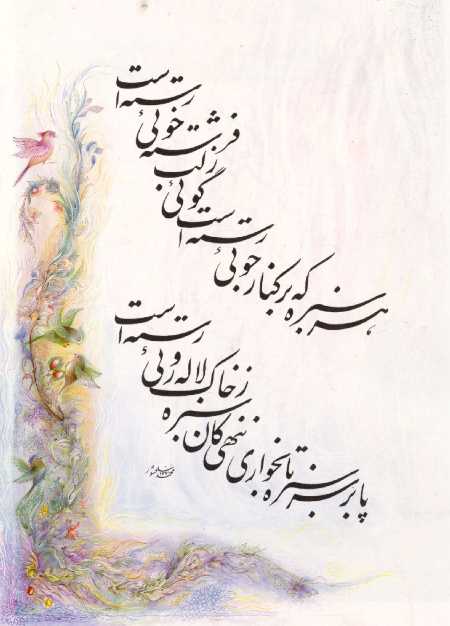 هر سبزه که بر کنار جوئی رسته است
گوئی ز لب فرشته خوئی رسته است
پا بر سر سبزه تا بخواری ننهی
کان سبزه ز خاک لاله روئی رسته است